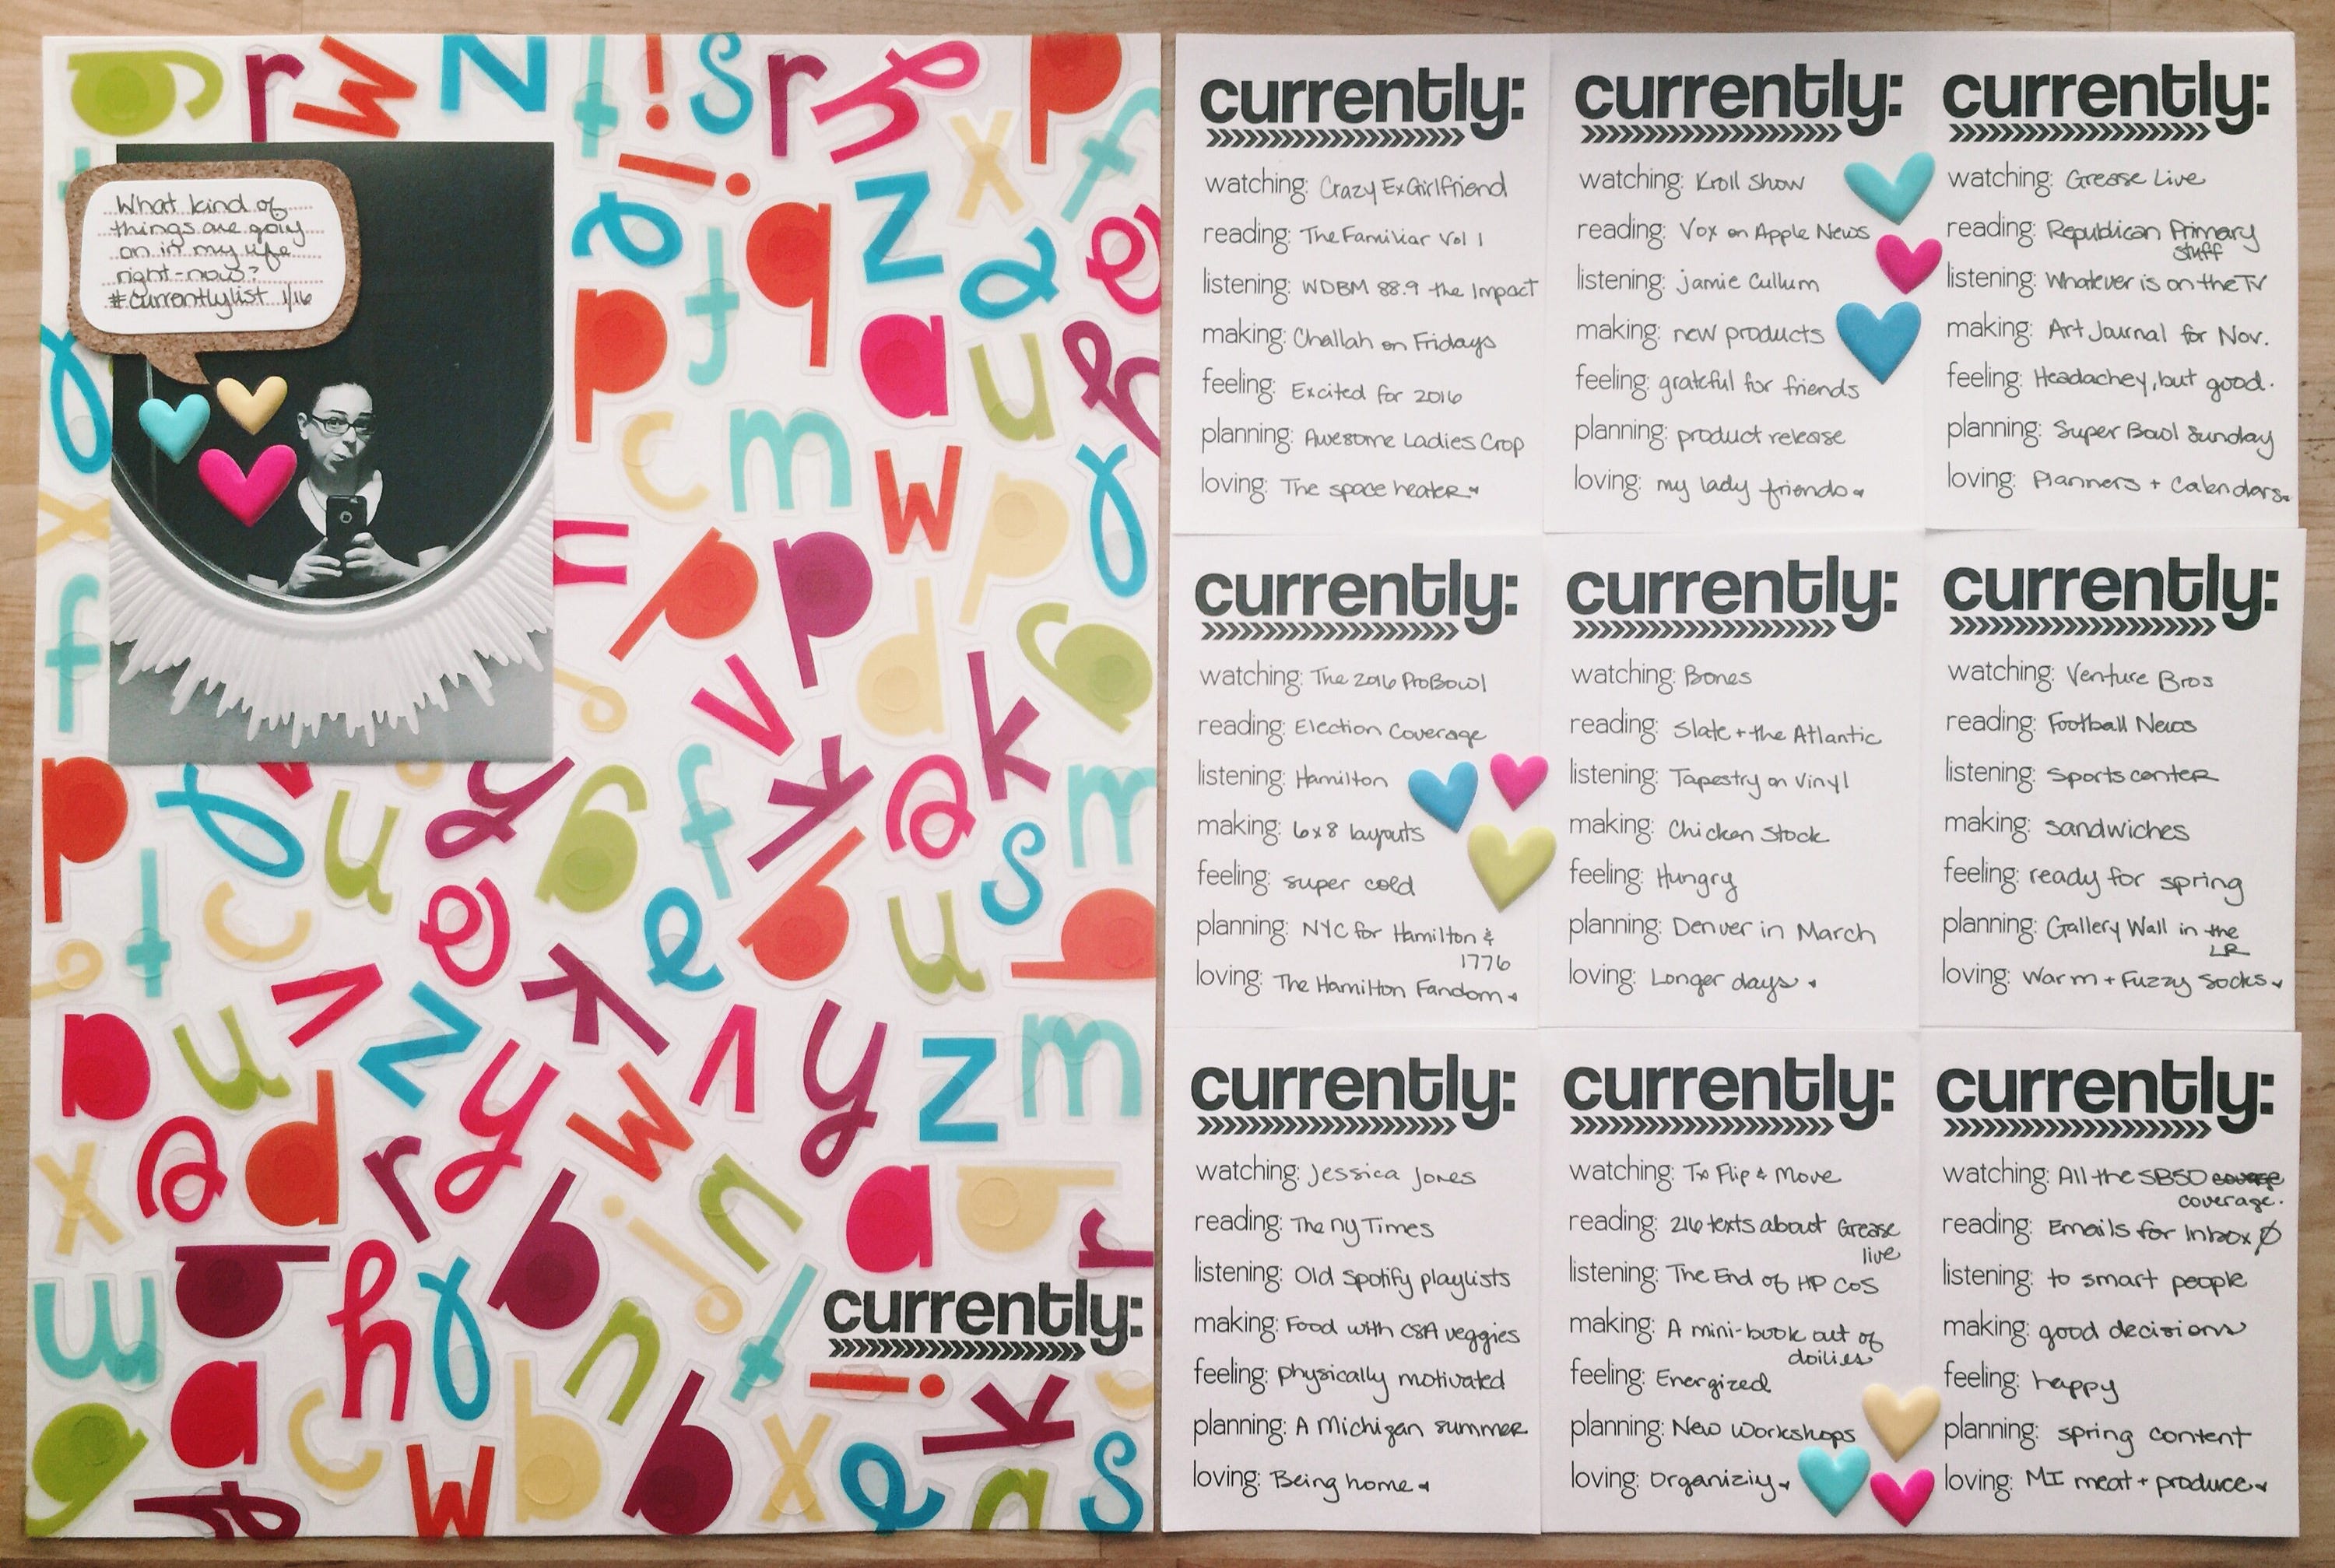 What kind of
things are going
on in my life
right-now?
#currentlylist 1/16
currently:
currently:
watching: Crazy ExGirlfriend
reading: The Familiar Vol 1
listening: WDBM 88.9 the Impact
making: Challah on Fridays
feeling: Excited for 2016
planning: Awesome Ladies Crop
loving: The space heater
currently:
watching: Kroll Show
reading: Vox on Apple News
listening: jamie Cullum
making: new products
feeling: grateful for friends
planning: product release
loving: my lady friends
currently:
watching: Grease Live
reading: Republican Primary
stuff
listening: Whatever is on the TV
making: Art Journal for Nov.
feeling: Headachey, but good.
planning: Super Bowl Sunday
loving: Planners + Calendars
currently:
watching: The 2016 ProBowl
reading: Election Coverage
listening: Hamilton
making: 6x8 layouts
feeling: super cold
planning: NYC for Hamilton &
1776
loving: The Hamilton Fandom
currently:
watching: Bones
reading: Slate + the Atlantic
listening: Tapestry on Vinyl
making: Chicken Stock
feeling: Hungry
planning: Denver in March
loving: Longer days
currently:
watching: Venture Bros
reading: Football News
listening: Sportscenter
making: sandwiches
feeling: ready for spring
planning: Gallery Wall in the
LR
loving: Warm + Fuzzy Socks
currently:
watching: Jessica Jones
reading: The ny Times
listening: Old Spotify playlists
making: Food with CSA veggies
feeling: physically motivated
planning: A Michigan summer
loving: Being home
currently:
watching: Tx Flip & Move
reading: 216 texts about Grease
live
listening: The End of HP CoS
making: A mini-book out of
doilies
feeling: Energized
planning: New Workshops
loving: Organizing
currently:
watching: All the SB50
coverage.
reading: Emails for Inbox Ø
listening: to smart people
making: good decisions
feeling: happy
planning: spring content
loving: MI meat + produce